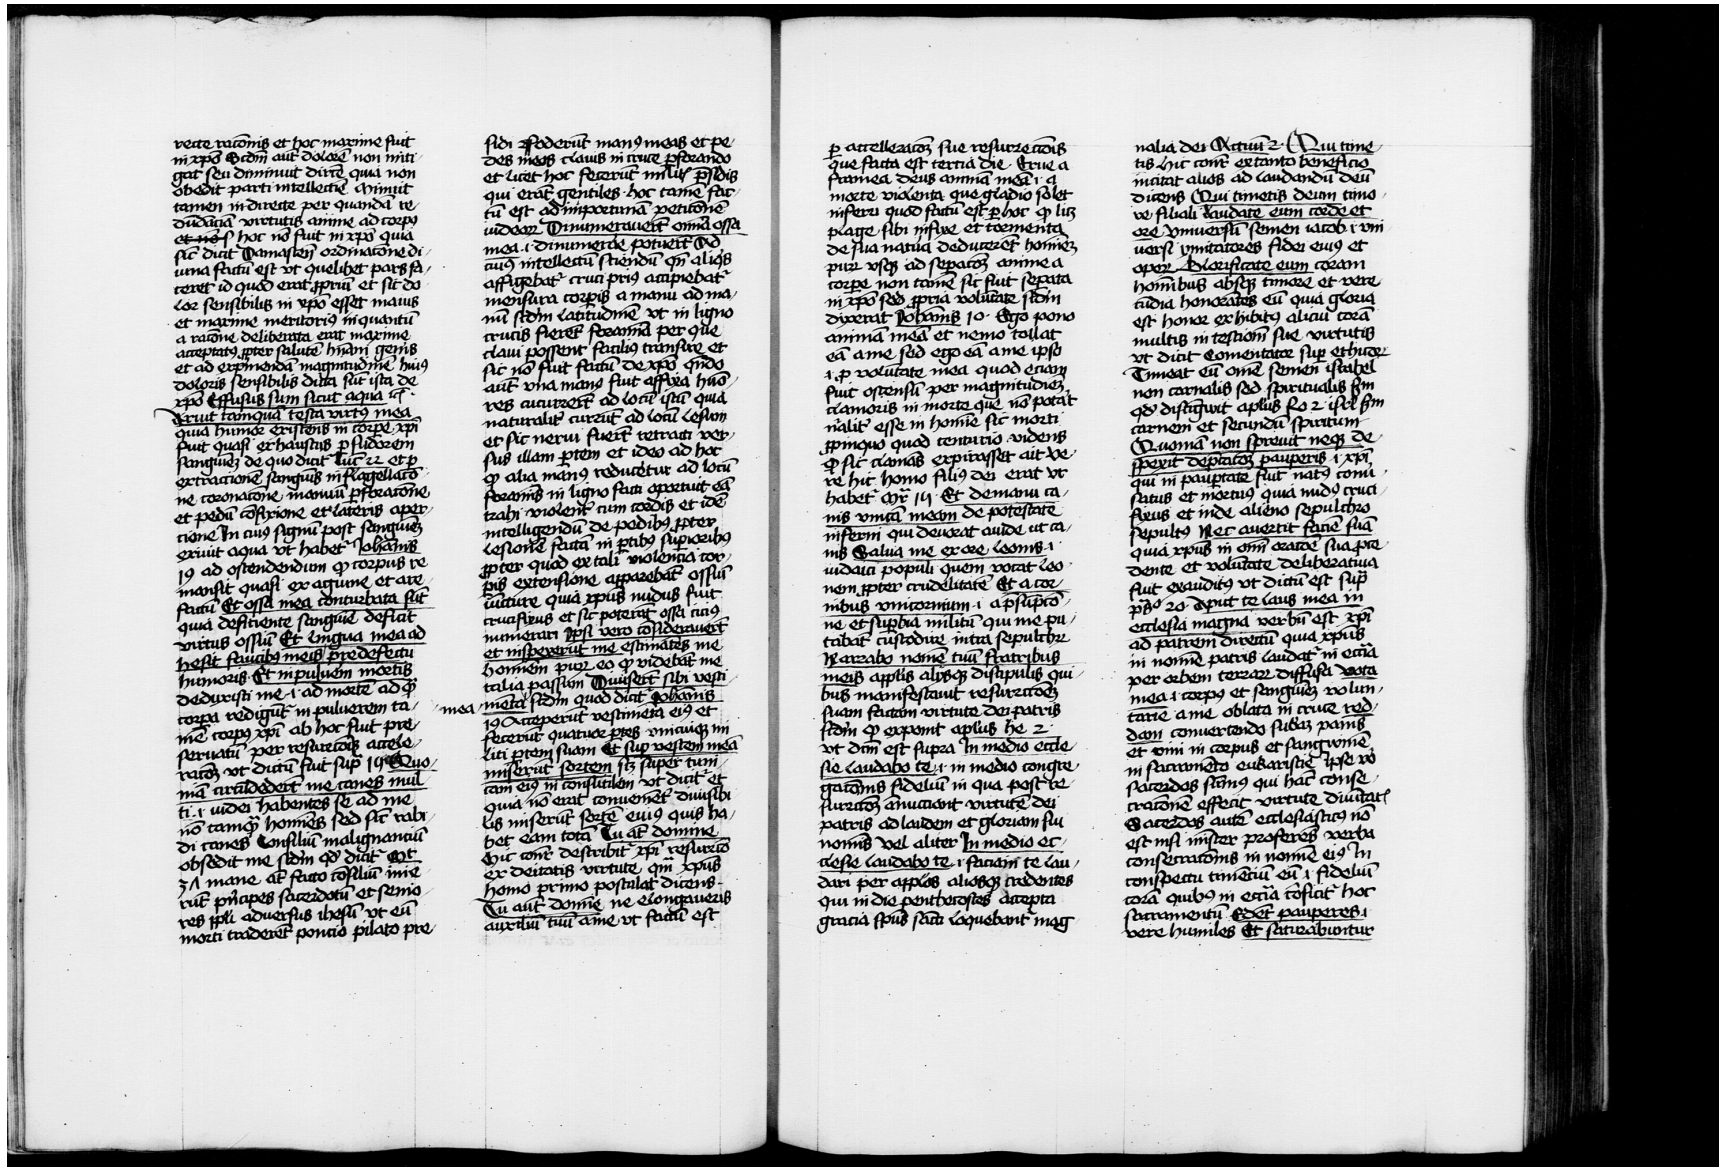 recte racōnis et hoc maxime fuit
in xp̄o Scd̄m aūt dolorē non miti-
gat seu diminuit dīrcē quia non
obedit parti intellectiē Minuit
tamen in directe per quandā re
dūdāciā virtutis anime ad corpꝰ
hoc nō fuit in xp̄o quia
sic̄ dicit Damascen̄ ordinatōne di-
uina factū est vt quelibet pars fa-
ceret id quod erat ꝓpriū et sic do-
lor sensibilis in xp̄o esset maius
et maxime meritoriꝰ inquantū
a racōne deliberata erat maxime
acceptatꝰ ꝓpter salutē hūani generis
et ad exp̄mendā magnitudinē huiꝰ
doloris sensibilis dicta sūt ista de
xp̄o Effusus sum sicut aqua
Aruit tanquā testa virtꝰ mea
quia humor existens in corpe xp̄i
fuit quasi exhaustus ꝑ sudorem
sanguis de quo dicit̄ Luc̄ 22 et ꝑ
extractionē sanguīs in flagellacō-
ne coronatōne manuū ꝑforacōne
et pedū cōfixione et lateris aper-
cione In cuiꝰ signū post sanguinē
exiuit aqua vt habet̄ Johānis
19 ad ostendendum ꝙ corpus re
mansit quasi ex agmine et are-
factū Et ossa mea conturbata sūt
quia deficiente sanguīe deficit
virtus ossiū Et lingua mea ad
hesit faucibꝰ meis pre defectu
humoris Et in puluem mortis
deduxisti me .i. ad mortē ad q̄
corpa redigūt̄ in puluerem ta-
mē corpꝰ xp̄i ab hoc fuit pre-
seruatū per resurectōis accele-
racōꝫ vt dictū fuit sup̄ 19 Quo-
niā circūdederūt me canes mul
ti .i. iudei habentes se ad me
nō tamq̄ homines sed sic̄ rabi-
di canes Consiliū malignanciū
obsedit me scd̄m qd̄ dicit̄ Mt
27 mane aūt facto cōsiliū inie
rūt prīcipes sacerdotū et senio-
res ppli adversus ihesū vt eū
morti traderēt poncio pilato pre
sidi Foderūt manꝰ meas et pe-
des meos clauis in cruce ꝑforando
et licet hoc fecerūt milit̄ presidis
qui erāt gentiles hoc tamē fac-
tū est ad importunā peticōnē
iudeoꝝ Dinumerauerūt omīa ossa
mea .i. dinumerare potuerūt Ad
cuiꝰ intellectū sciendū qn̄ aliqis
affigebat̄ cruci priꝰ accipiebat̄
mensura corpis a manu ad ma-
nū scd̄m latitudinē vt in ligno
crucis fierēt foramia per que
claui possent faciliꝰ transire et
sic nō fuit factū de xp̄o qn̄do
aūt vna manꝰ fuit affixa humo-
res cucurrerūt ad locū istū quia
naturalit̄ currūt ad locū lesum
et sic nerui fuerūt retracti ver-
sus illam ꝑtem et ideo ad hoc
ꝙ alia manꝰ reducetur ad locū
foramīs in ligno facti oportuit eā
trahi violent̄ cum cordis et idē
intelligendū de pedibꝰ ꝓpter
lesionē factā in ꝑtibꝰ superioribꝰ
ꝓpter quod ex tali violencia cor-
pis extensione apparebāt ossiū
iūcture quia xpūs nudus fuit
crucifixus et sic poterāt ossa ciciꝰ
numerari Ipsi vero cōsiderauerūt
et inspexerūt me estimātes me
hominem puꝝ eo ꝙ videbāt me
talia passum Diuiserūt sibi vesti-
mea
mēta scd̄m quod dicit̄ Johānis
19 Acceperūt vestimēta eiꝰ et
fecerūt quatuor ꝑtes vnicuiqꝫ mi
liti ꝑtem suam Et sup vestem meā
miserūt sortem scꝫ super tuni-
cam eiꝰ incōsutilem vt dicit̄ et
quia nō erat conuenēt̄ diuisibi
lis miserūt sortē cuiꝰ quis ha-
bet eam totā Tu aūt domine
hic cōnt̄ describit̄ xp̄i resurectō
ex deitatis virtute quā xpūs
homo primo postulat dicens
Tu aūt domīe ne elongaueris
auxiliū tuū a me vt factū est
ꝑ acceleracōꝫ sue resurrectōis
que facta est tercia die Erue a
framea deus animā meā .i. a
morte violenta que gladio solet
inferri quod factū est ꝑ hoc ꝙ licꝫ
plage sibi infixe et tormenta
de sua natura deducerēt hominē
puꝝ vsqꝫ ad seperacōꝫ anime a
corpe non tamē sic fuit seperata
in xp̄o sed ꝓpria volūtate scd̄m
dixerat Johānis 10 Ego pono
animā meā et nemo tollat
eā a me sed ego eā a me ipso
.i. ꝓ volūtate mea quod eciam
fuit ostensū per magnitudinē
clamoris in morte que nō poterat
nālit̄ esse in homīe sic morti
ꝓpinquo quod centurio videns
ꝙ sic clamās expirasset ait Ve-
re hic homo filiꝰ dei erat vt
habet̄ Mr̄ Et de manu ca-
nis vnicā meam de potestate
inferni qui deuorat auide ut ca-
nis Salua me ex ore leonis .i.
iudaici populi quem vocat leo-
nem ꝓpter crudelitatē Et a cor-
nibus vnicornium .i. a presūpcō-
ne et supbia militū qui me pu-
tabāt custodire intra sepulchrꝫ
Narrabo nomē tuū fratribus
meis apostolis alijsqꝫ discipulis qui-
bus manifestauit resurrectōꝫ
suam factam virtute dei patris
scd̄m ꝙ exponit aplus he 2
vt dcm̄ est supra In medio eccle-
sie laudabo te .i. in medio congre-
gacōnis fideliū in qua post re
surrectōꝫ anuncient virtutē dei
patris ad laudem et gloriam sui
nomīs vel aliter In medio ec-
clesie laudabo te .i. faciam te lau-
dari per applos aliosqꝫ credentes
qui in die penthecostes accepta
gracia spūs sāncti loquebant̄ mag
nalia dei Actuū 2 Qui time-
tis Hic cont̄ ex tanto beneficio
incitat alios ad laudandū deū
dicens Qui timetis deum timo-
re filiali laudate eum corde et
ore Vniuersū semen iacob .i. vni
uersi ymitatores fidei eiꝰ et
operꝫ Glorificate eum coram
homībus absqꝫ timore et vere
cūdia honorātes eū quia gloria
est honor exhibitꝰ alicui corā
multis in testīoniū sue virtutis
vt dicit Comentator sup ethicoꝝ
Timeat eū omē semen israhel
non carnalis sed spiritualis scd̄m
qd̄ distīguit aplus Ro 2 isrl̄ scd̄m
carnem et secundū spiritum
Quoniā non spreuit neqꝫ de-
spexit deprecacōꝫ pauperis .i. xp̄i
qui in paupertate fuit natꝰ conu-
satus et mortuꝰ quia nudꝰ cruci
fixus et inde alieno sepulchro
sepultꝰ Nec auertit faciē suā
quia xpūs in omī oracōe sua pre-
dente et volūtate deliberatiua
fuit exauditꝰ vt dictū est sup̄
ps̄o 20 Aput te laus mea in
ecclesia magna verbū est xp̄i
ad patrem directū quia xpūs
in nomīe patris laudat̄ in ecciā
per orbem terraꝝ diffusa Vota
mea .i. corpꝰ et sanguinē volun-
tarie a me oblata in cruce red-
dam conuertendo subāꝫ panis
et vini in corpus et sanguinē
in sacramēto eukaristie Ipse vo
sacerdos sūmꝰ qui hāc conse-
cracōnē effecit virtute diuitat̄
Sacerdos autē ecclesiasticꝰ nō
est nisi mīster proferēs verba
consecracōnis in nomīe eiꝰ In
conspectu timēciū eū .i. fideliū
corā quibꝰ in ecciā cōficit̄ hoc
sacramentū Edent pauperes .i.
vere humiles Et saturabuntur